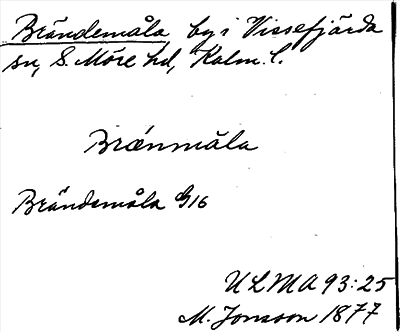 Brändemåla by i Vissefjärda
sn, S. Möre hd, Kalm. l.
Brǽnmåla
Brändemåla G16
ULMA 93:25
M. Jonsson 1877